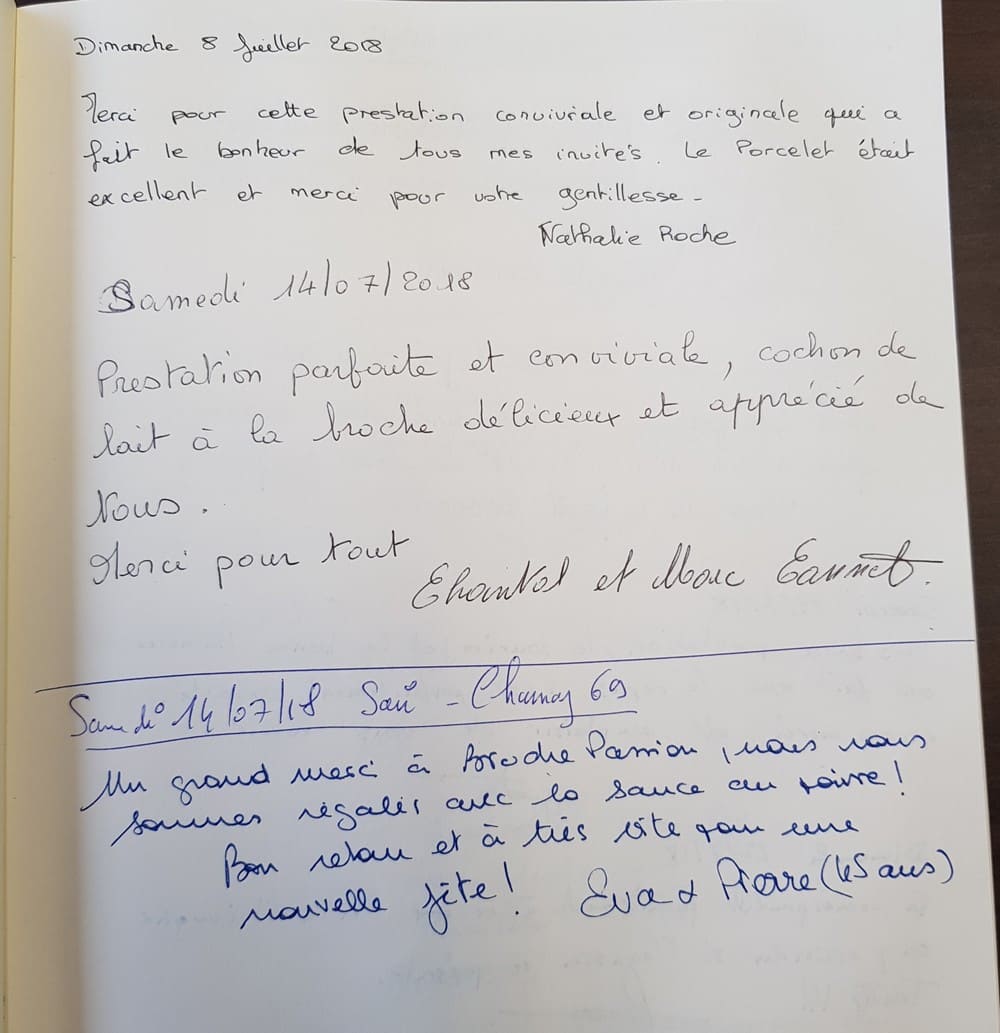 Dimanche 8 Juillet 2018
Merci pour cette prestation conviviale et originale qui a
fait le bonheur de tous mes invités. Le Porcelet était
excellent et merci pour votre gentillesse -
Nathalie Roche
Samedi 14/07/2018
Prestation parfaite et conviviale, cochon de
lait à la broche délicieux et apprécié de
Nous.
Merci pour tout
Chantal et Marc
Samedi 14/07/18 Soir - Charnay 69
Un grand merci à Broche Passion, nous nous
sommes régalés avec la sauce au poivre!
Bon retour et à très vite pour une
nouvelle fête! Eva & Pierre (45 ans)